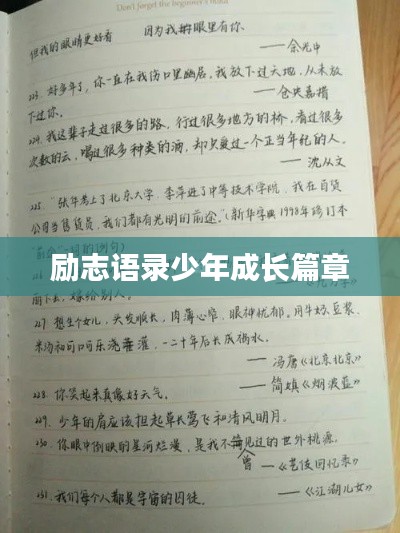 Don't forget the beginner's mind
因为我的眼里有你
但我的眼睛更好看
——余光中
223. 好多年了，你一直在我伤口里幽居，我放下过天地，从未放
下过你。
——仓央嘉措
224. 我这辈子走过很多的路，行过很多地方的桥，看过很多
次数的云，喝过很多种类的酒，却只爱过一个正当年纪的人。
——沈从文
225. "张华考上了北京大学，李萍进了中等技术学院，我在百货
公司当售货员，我们都有光明的前途。"（新华字典1998年修订本
励志语录少年成长篇章
嫁给别人。
227. 想生个女儿，头发顺长，肉薄心窄，眼神忧郁。用牛奶、豆浆、
米汤和可口可乐浇灌，一二十年后长成祸水。
——冯唐《北京北京》
228. 你笑起来真像好天气。
——简媜《烟波蓝》
229. 少年的肩应该担起草长莺飞和清风明月。
230. 你眼中倒映的星河烂漫，是我不曾见过的世外桃源。
——《艺伎回忆录》
231. 我们每个人都是宇宙的囚徒。
——《江湖儿女》